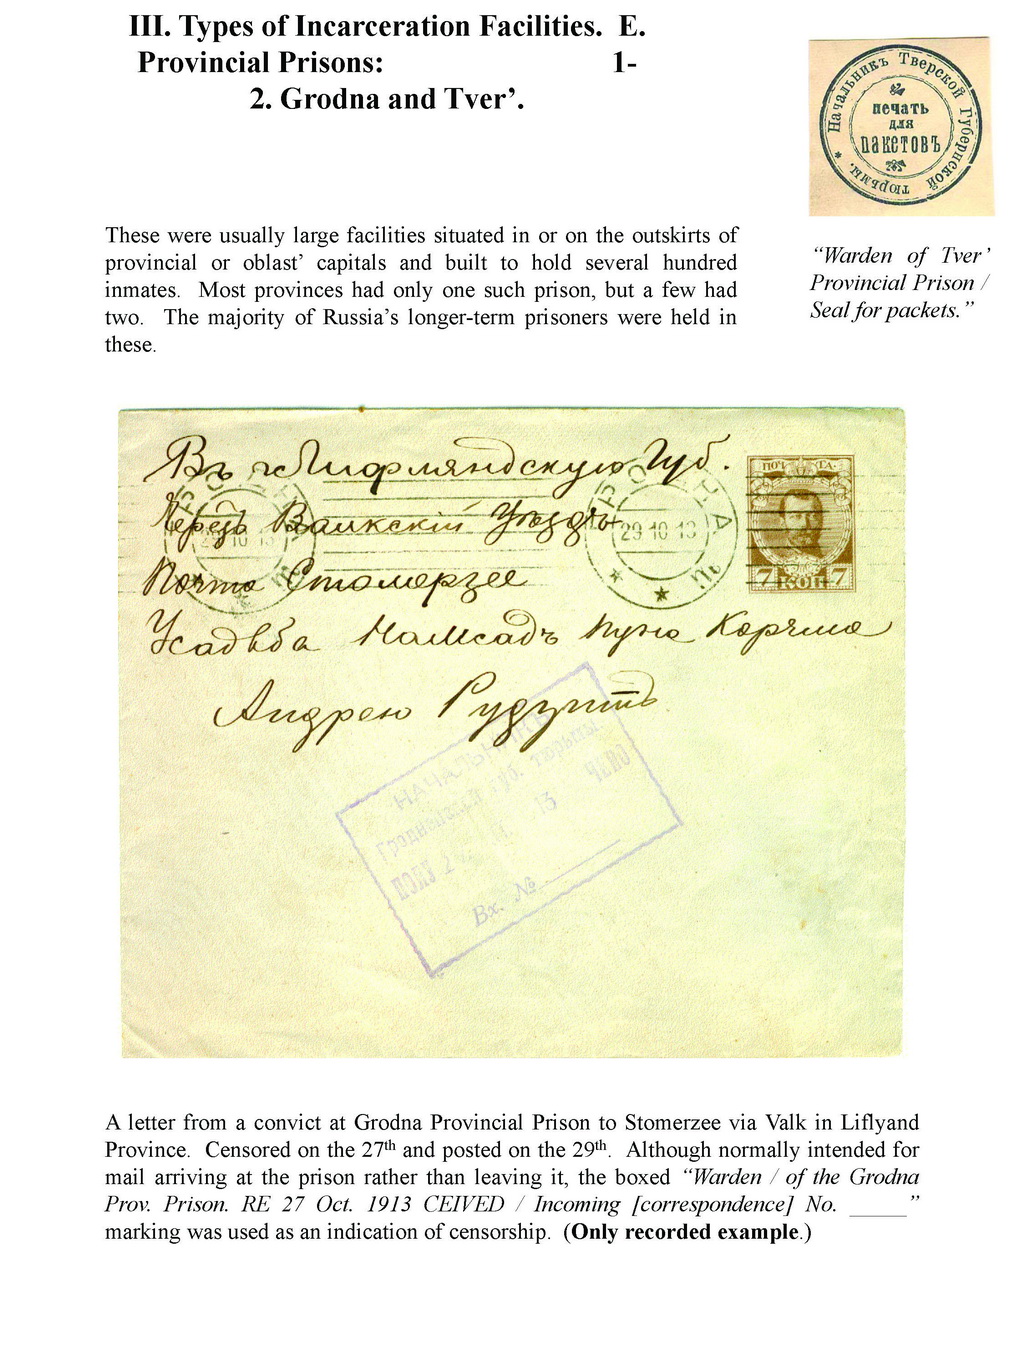 III. Types of Incarceration Facilities.  E.
Provincial Prisons: 1-
2. Grodna and Tver’.
Начальникъ Тверской Губернской Тюрьмы. *
печать
для
пакетовъ
These were usually large facilities situated in or on the outskirts of
provincial or oblast’ capitals and built to hold several hundred
inmates.  Most provinces had only one such prison, but a few had
two.  The majority of Russia’s longer-term prisoners were held in
these.
“Warden of Tver’
Provincial Prison /
Seal for packets.”
Въ Лифляндскую Губ.
ПОЧТА.
Черезъ Валкскій Уѣздъ
ГРОДНА
29 10 13
ГРОДНА
29 10 13
Почта Стомерзее
7 КОП 7
Усадьба
Андрею Рудзитъ
НАЧАЛЬНИКЪ
Гродненской губ. тюрьмы
ПОЛУ 2 13 ЧЕНО
Вх. №
A letter from a convict at Grodna Provincial Prison to Stomerzee via Valk in Liflyand
Province.  Censored on the 27th and posted on the 29th.  Although normally intended for
mail arriving at the prison rather than leaving it, the boxed “Warden / of the Grodna
Prov. Prison. RE 27 Oct. 1913 CEIVED / Incoming [correspondence] No. ______”
marking was used as an indication of censorship.  (Only recorded example.)